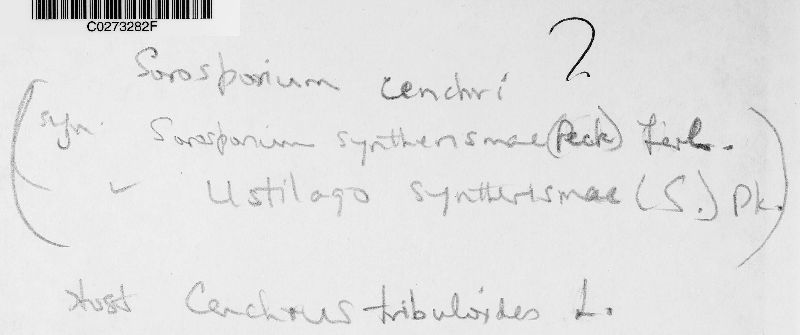 C0273282F
Sorosporium cenchri ?
(syn. Sorosporium syntherismae (Peck) Farl.
" Ustilago syntherismae (S.) Pk.)
Host Cenchrus tribuloides L.